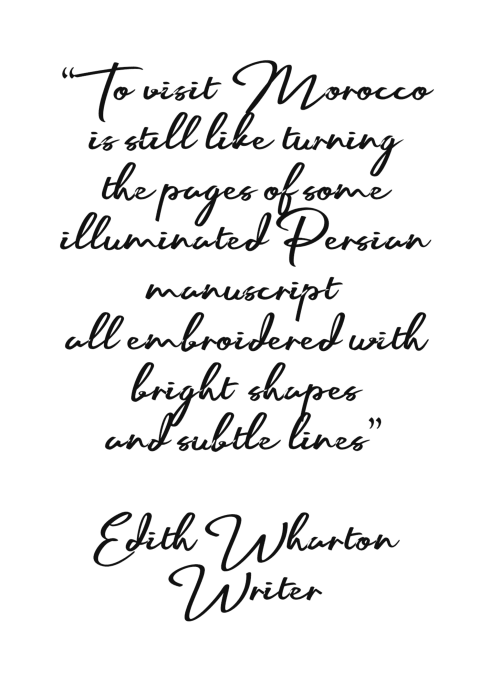 “To visit Morocco
is still like turning
the pages of some
illuminated Persian
manuscript
all embroidered with
bright shapes
and subtle lines”
Edith Wharton
Writer